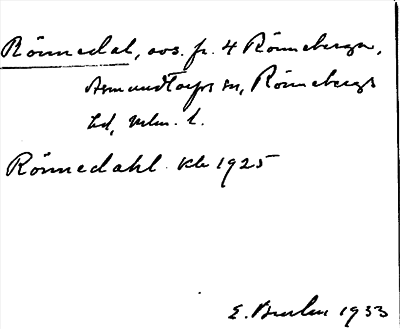 Rönnedal, avs. fr. 4 Rönneberga,
Asmundtorps sn, Rönnebergs
hd, Mlm. l.
Rönnedahl kb 1925
E. 1933